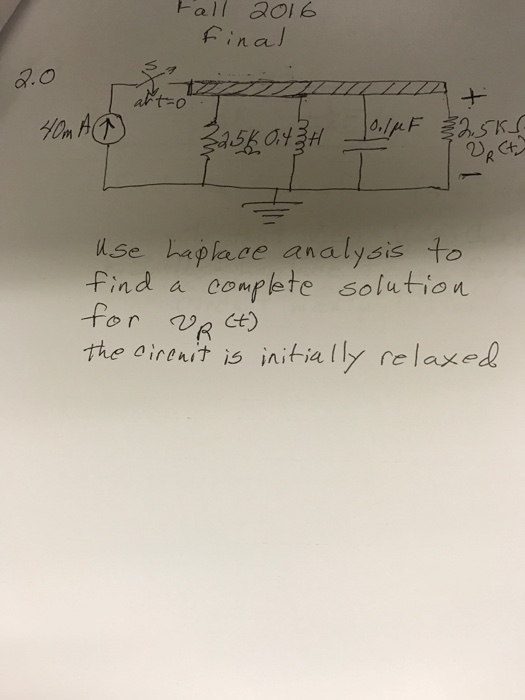 Fall 2016
Final
2.0
S
at t=0
40mA
2.5K
0.4 H
0.1μF
+
2.5KΩ
vR(t)
−
Use Laplace analysis to
find a complete solution
for vR(t)
the circuit is initially relaxed